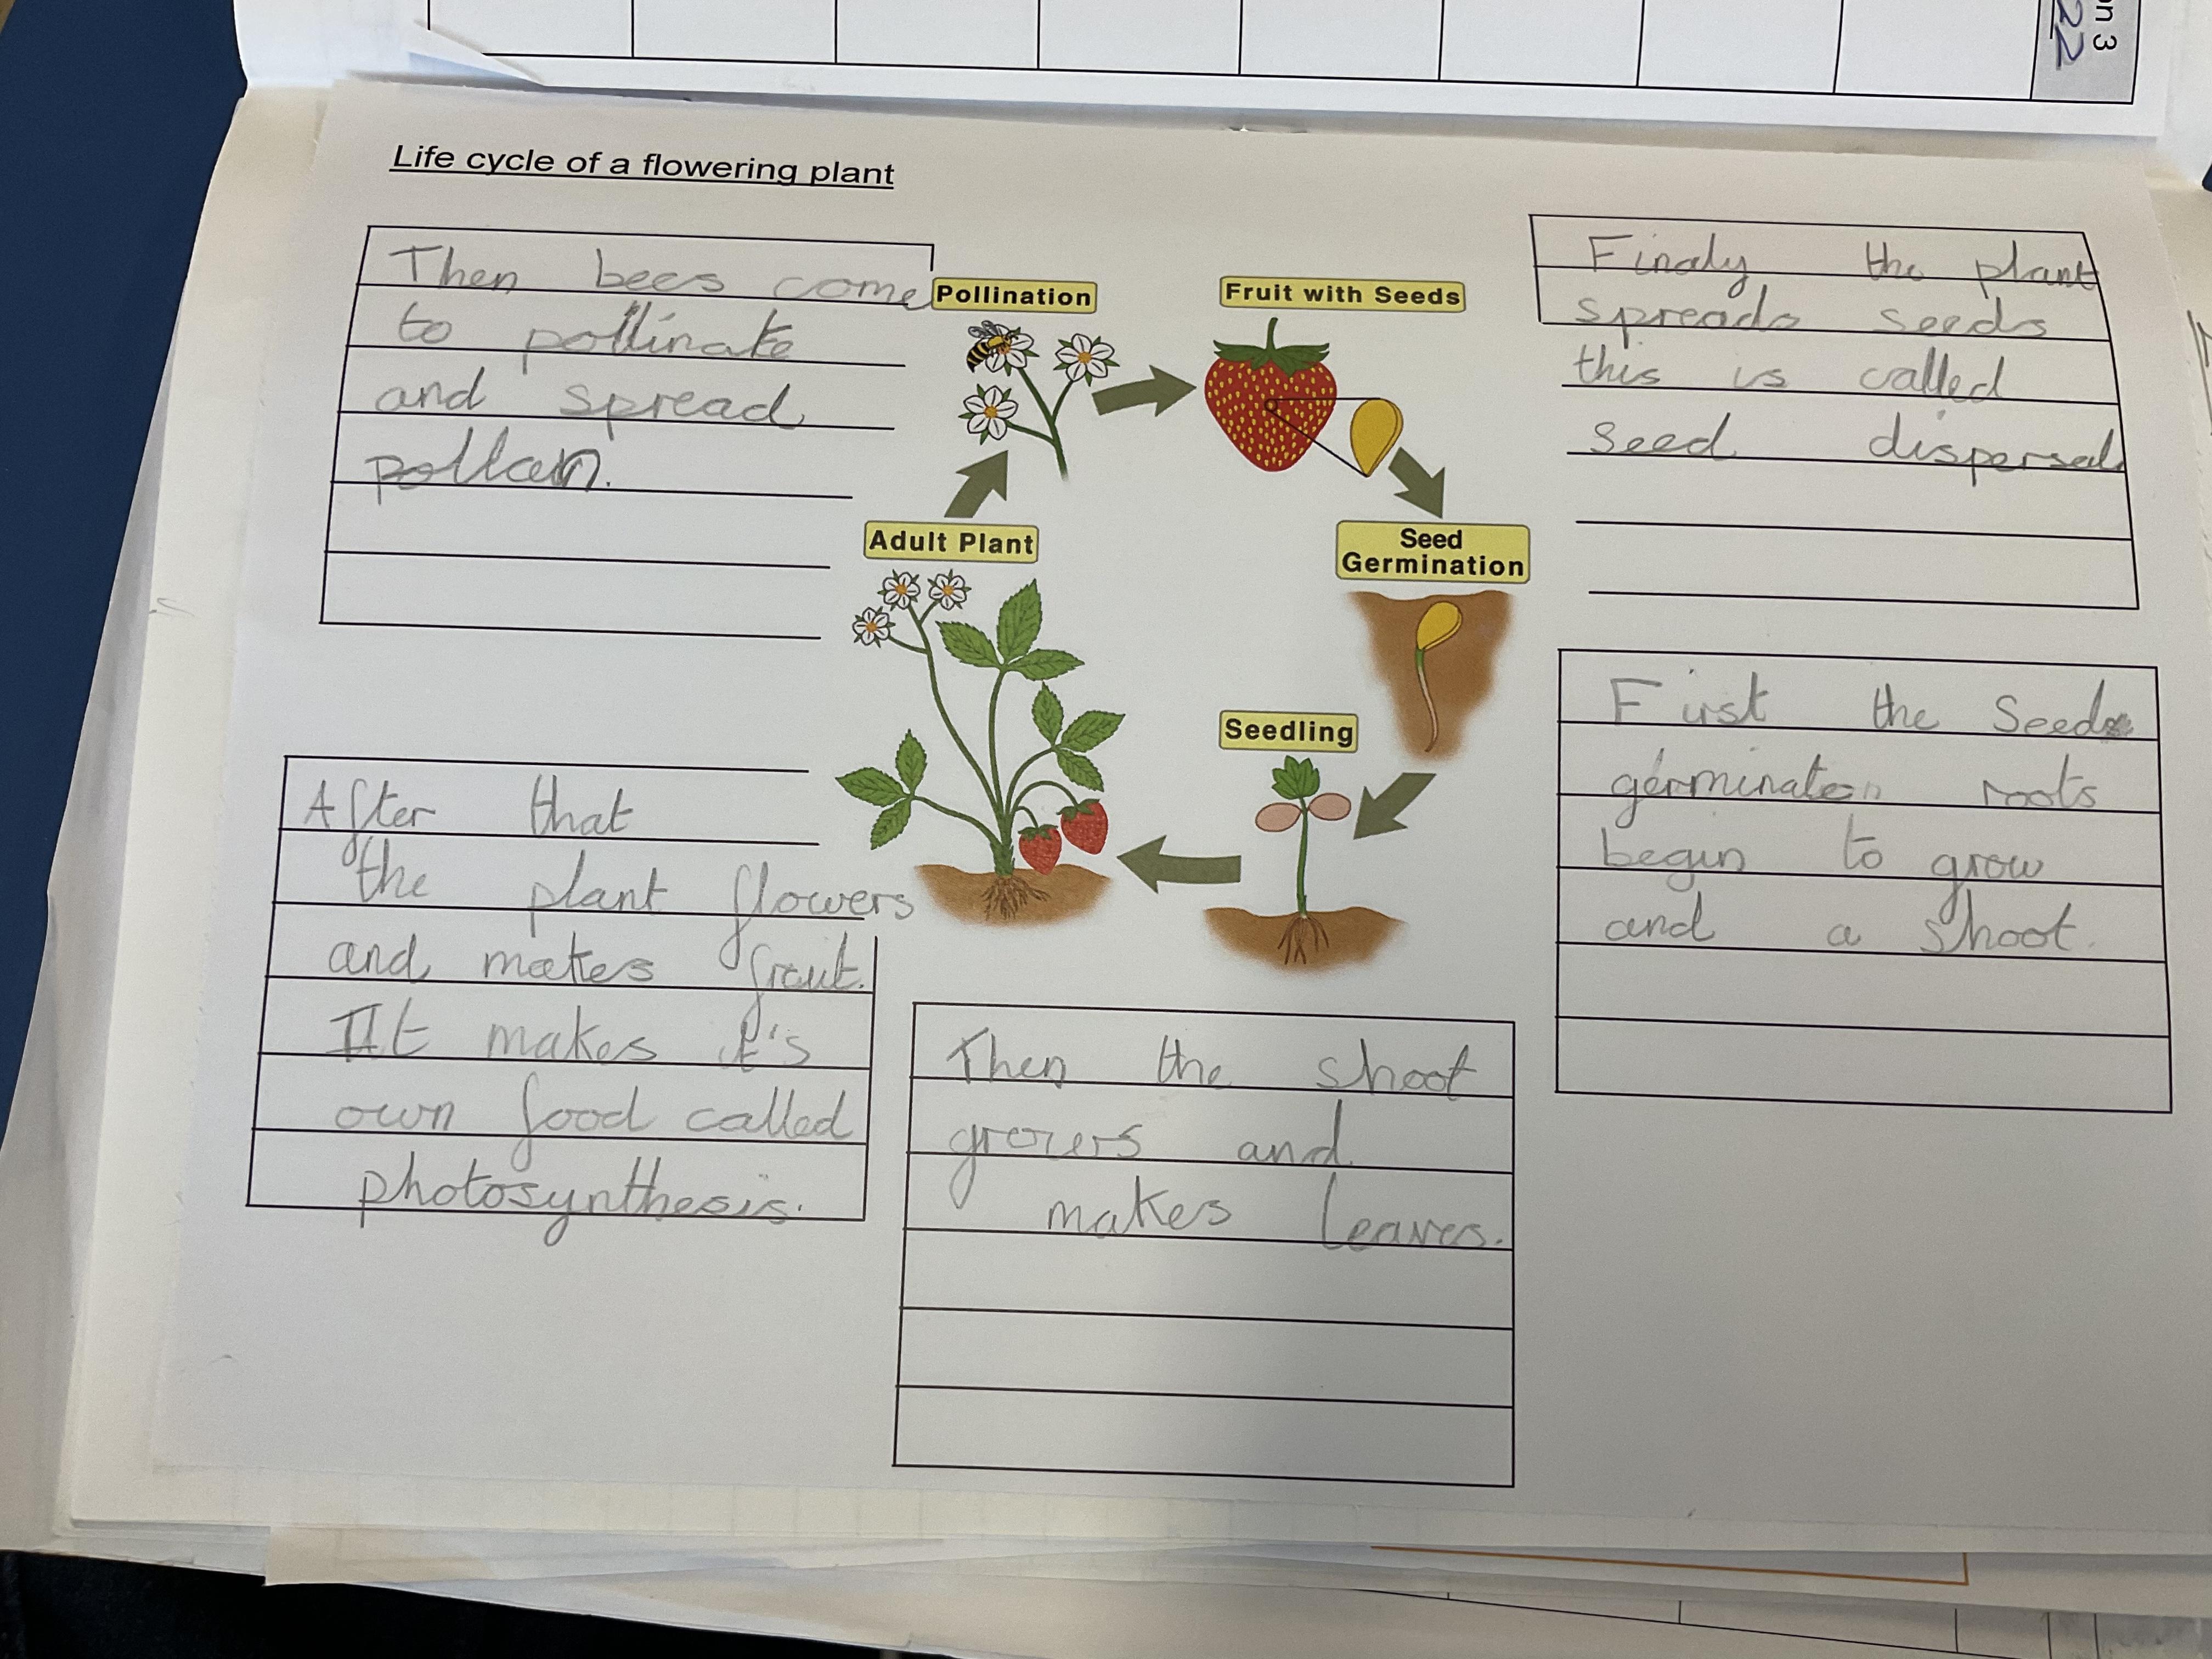 on 3
22
Life cycle of a flowering plant
Then bees come
to pollinate
and spread
pollen.
Pollination
Fruit with Seeds
Finaly the plant
spreads seeds
this is called
seed dispersal
Adult Plant
Seed
Germination
Seedling
First the Seed
germinates roots
begin to grow
and a shoot.
After that
the plant flowers
and makes fruit.
It makes it's
own food called
photosynthesis.
Then the shoot
growers and
makes leaves.